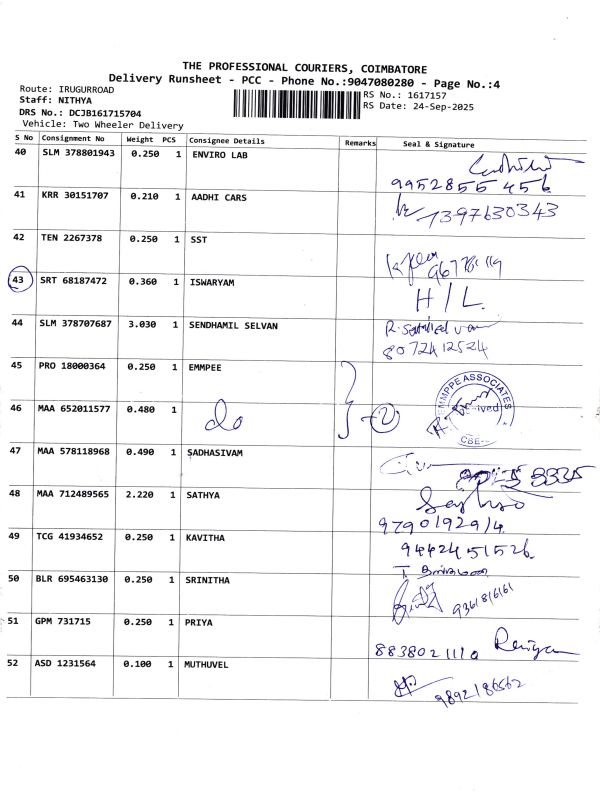 THE PROFESSIONAL COURIERS, COIMBATORE
Delivery Runsheet - PCC - Phone No.:9047080280 - Page No.:4
Route: IRUGURROAD
RS No.: 1617157
Staff: NITHYA
RS Date: 24-Sep-2025
DRS No.: DCJB161715704
Vehicle: Two Wheeler Delivery
S No Consignment No Weight PCS Consignee Details Remarks Seal & Signature
40 SLM 378801943 0.250 1 ENVIRO LAB
9952855 456
41 KRR 30151707 0.210 1 AADHI CARS
7397630343
42 TEN 2267378 0.250 1 SST
43 SRT 68187472 0.360 1 ISWARYAM H/L
44 SLM 378707687 3.030 1 SENDHAMIL SELVAN
8072412524
45 PRO 18000364 0.250 1 EMMPEE
EMMPPE ASSOCIATES
46 MAA 652011577 0.480 1 do 2
CBE
47 MAA 578118968 0.490 1 SADHASIVAM
48 MAA 712489565 2.220 1 SATHYA
9790192914
49 TCG 41934652 0.250 1 KAVITHA 9442451526
50 BLR 695463130 0.250 1 SRINITHA
9361816161
51 GPM 731715 0.250 1 PRIYA
8838021110
52 ASD 1231564 0.100 1 MUTHUVEL
9892186562